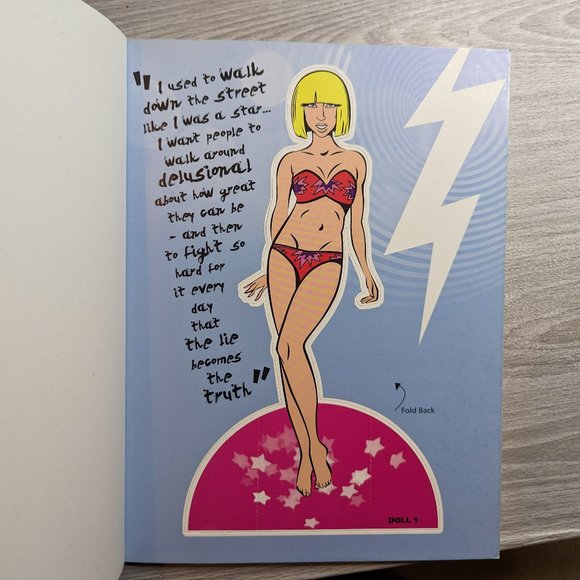 "I used to walk
down the street
like I was a star...
I want people to
walk around
delusional
about how great
they can be
- and then
to fight so
hard for
it every
day
that
the lie
becomes
the
truth"
Fold Back
DOLL 1